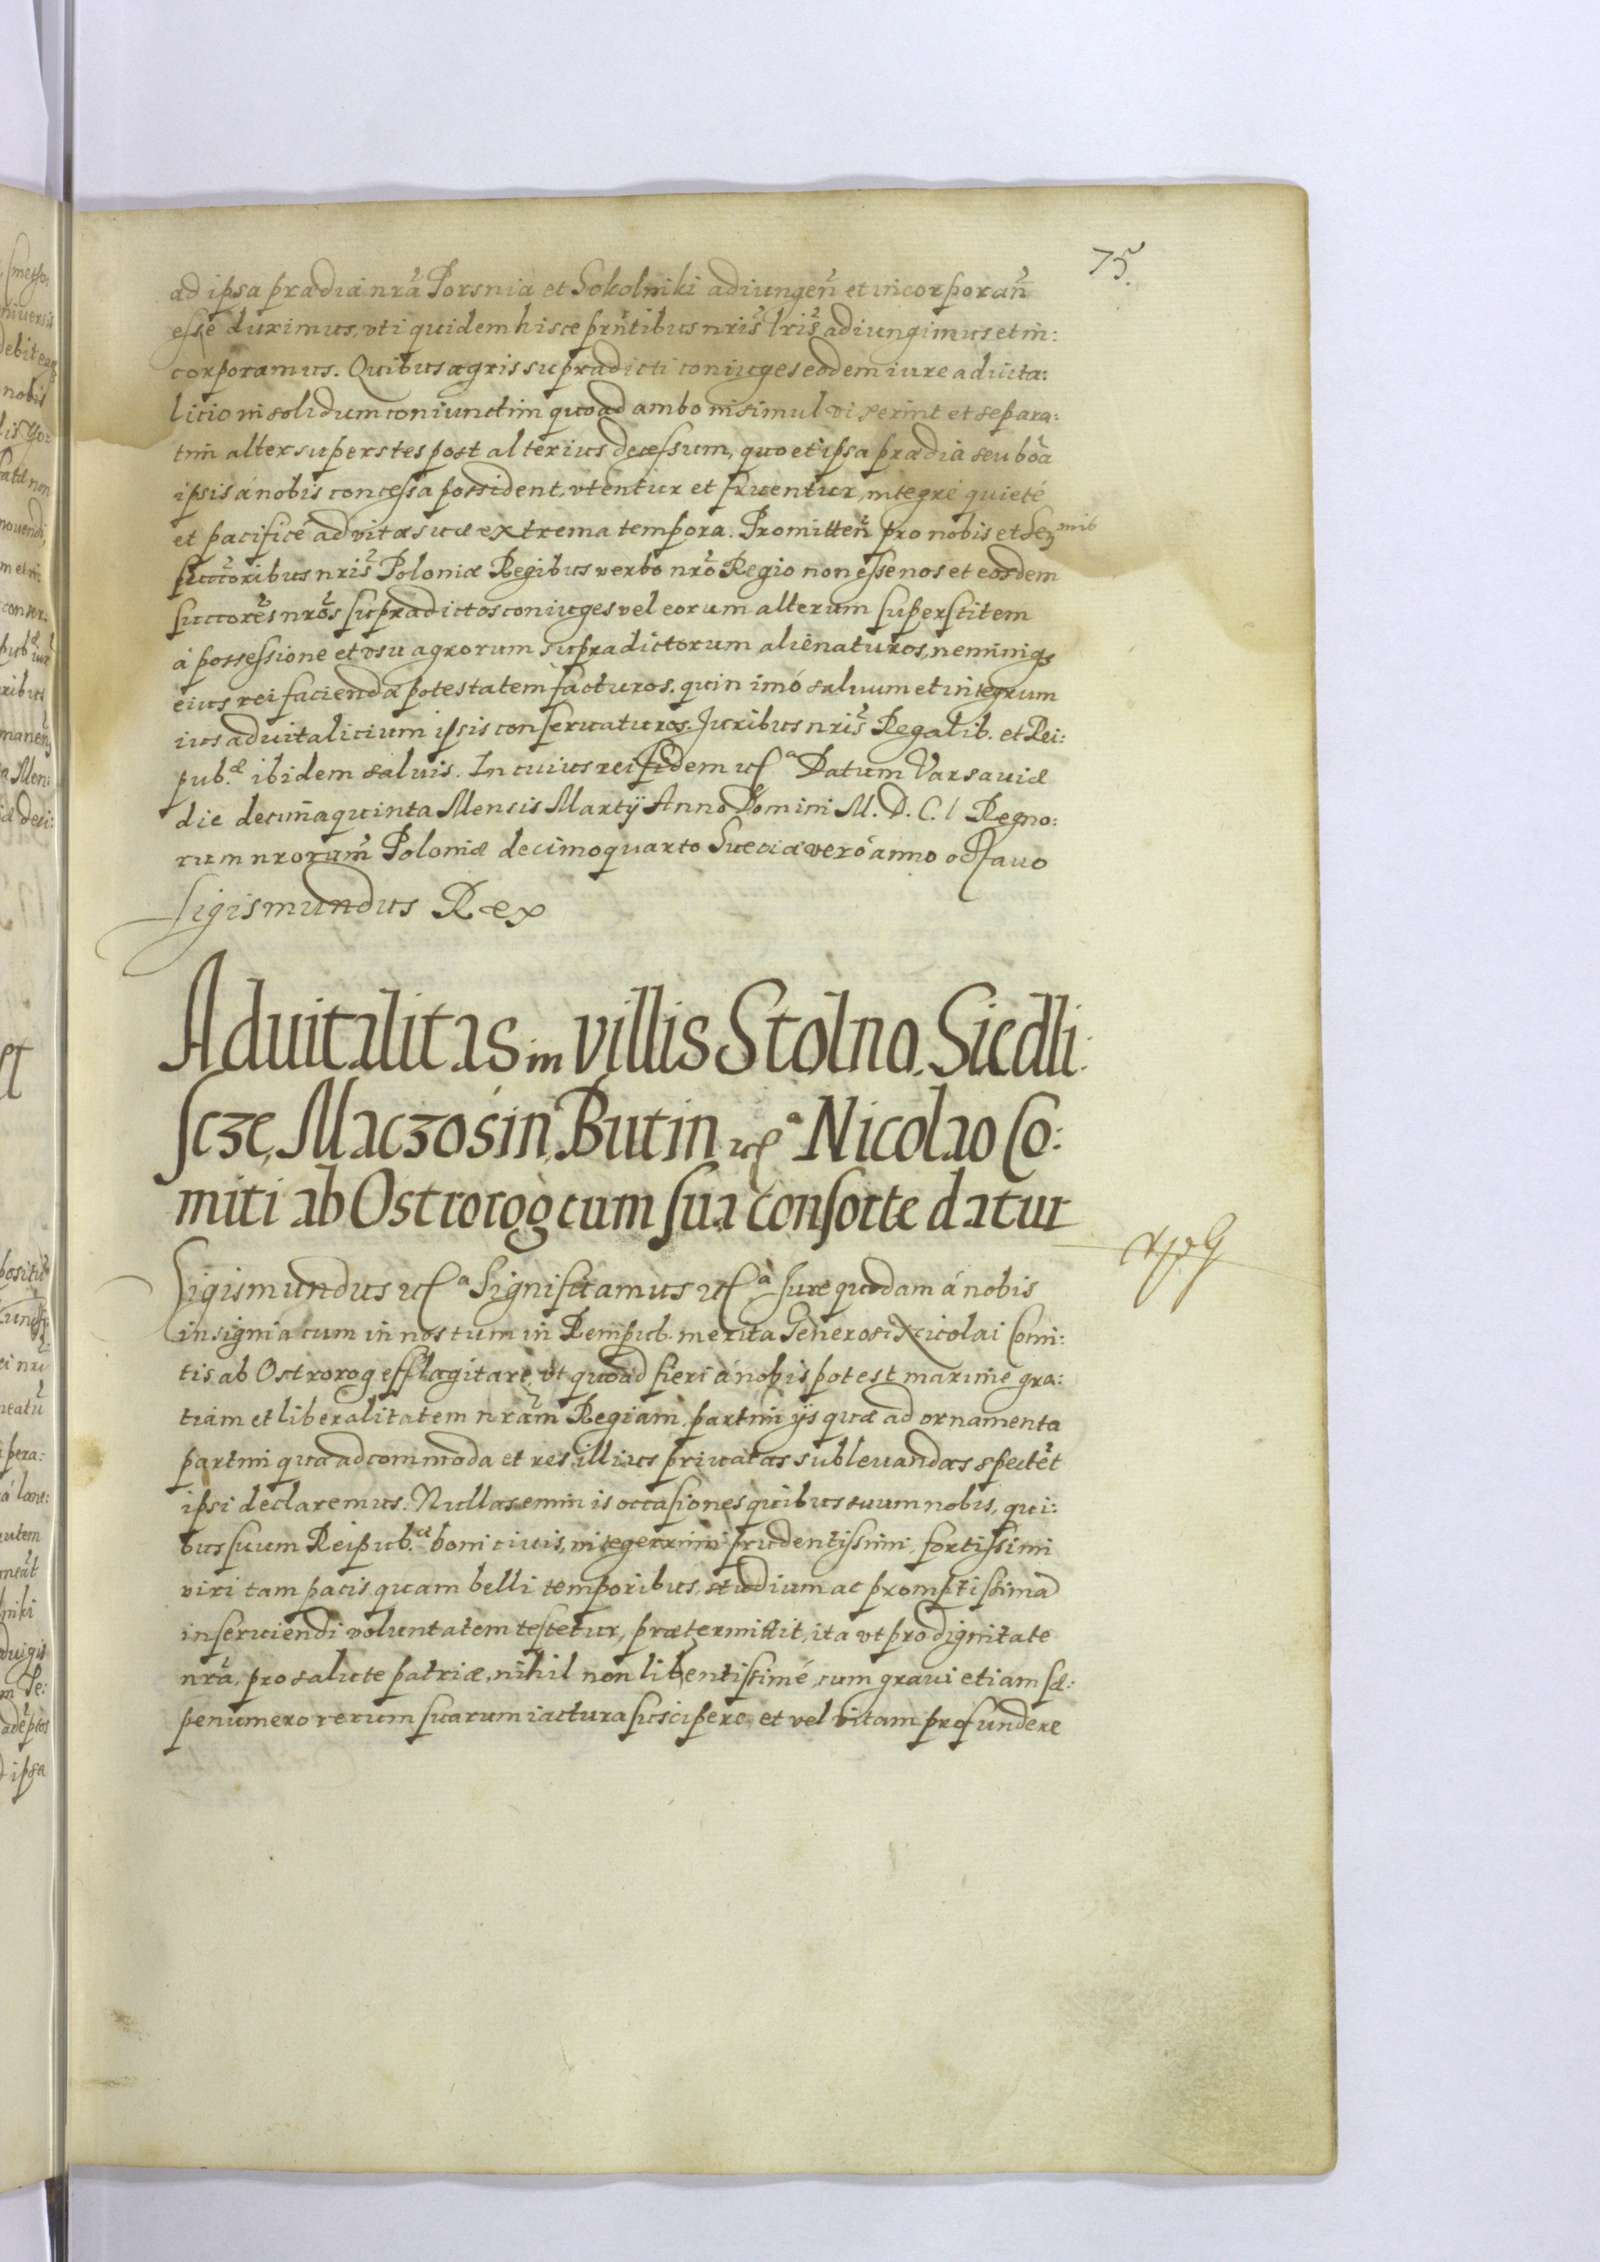 75.
ad ipsa prædia nrã Porsnia et Sokolniki adiungeñ et incorporañ
esse duximus, vti quidem hisce prñtibus nris̃ lris̃ adiungimus et in:
corporamus. Quibus agris supradicti coniuges eodem iure aduita:
licio in solidum coniunctim quoad ambo in simul vixerint et separa:
tim alter superstes post alterius decessum, quo et ipsa prædia seu bõa
ipsis á nobis concessa possident, vtentur et fruentur, integré quieté
et pacificé ad vitæ suæ extrema tempora. Promitteñ pro nobis et Serᵐⁱˢ
succ̃oribus nris̃ Poloniæ Regibus verbo nrõ Regio non esse nos et eosdem
succorẽs nrõs supradictos coniuges vel eorum alterum superstitem
á possessione et vsu agrorum supradictorum alienaturos, neminiqꝫ
eius rei faciendæ potestatem facturos. quin imó saluum et integrum
ius aduitalicium ipsis conseruaturos. Juribus nris̃ Regalib. et Rei:
pub.æ ibidem saluis. In cuius rei fidem ucᵃ Datum Varsauiæ
die decimaquinta Mensis Martÿ Anno Domini M. D. C. I Regno:
rum nrorum̃ Poloniæ decimoquarto Sueciæ veró anno octauo
Sigismundus Rex
Aduitalitas in villis Stolno, Siedli:
scze, Maczosin, Butin ucᵃ Nicolao Co:
miti ab Ostrorog cum sua consorte datur
Sigismundus ucᵃ Significamus ucᵃ Jure quodam á nobis
insignia cum in nos tum in Rempub. merita Generosi Nicolai Comi:
tis ab Ostrorog efflagitare, vt quoad fieri á nobis potest maxime gra:
tiam et liberalitatem nram̃ Regiam, partim ijs quæ ad ornamenta
partim quæ ad commoda et res illius priuatas subleuandas spectẽt
ipsi declaremus. Nullas enim is occasiones quibus suum nobis, qui:
bus suum Reipub.æ boni ciuis, integerrimi prudentissimi, fortissimi
viri tam pacis quam belli temporibus, studium ac promptissimã
inseruiendi voluntatem testetur, prætermittit, ita vt pro dignitate
nrã, pro salute patriæ, nihil non libentissimé, cum graui etiam sæ:
penumero rerum suarum iactura suscipere, et vel vitam profundere